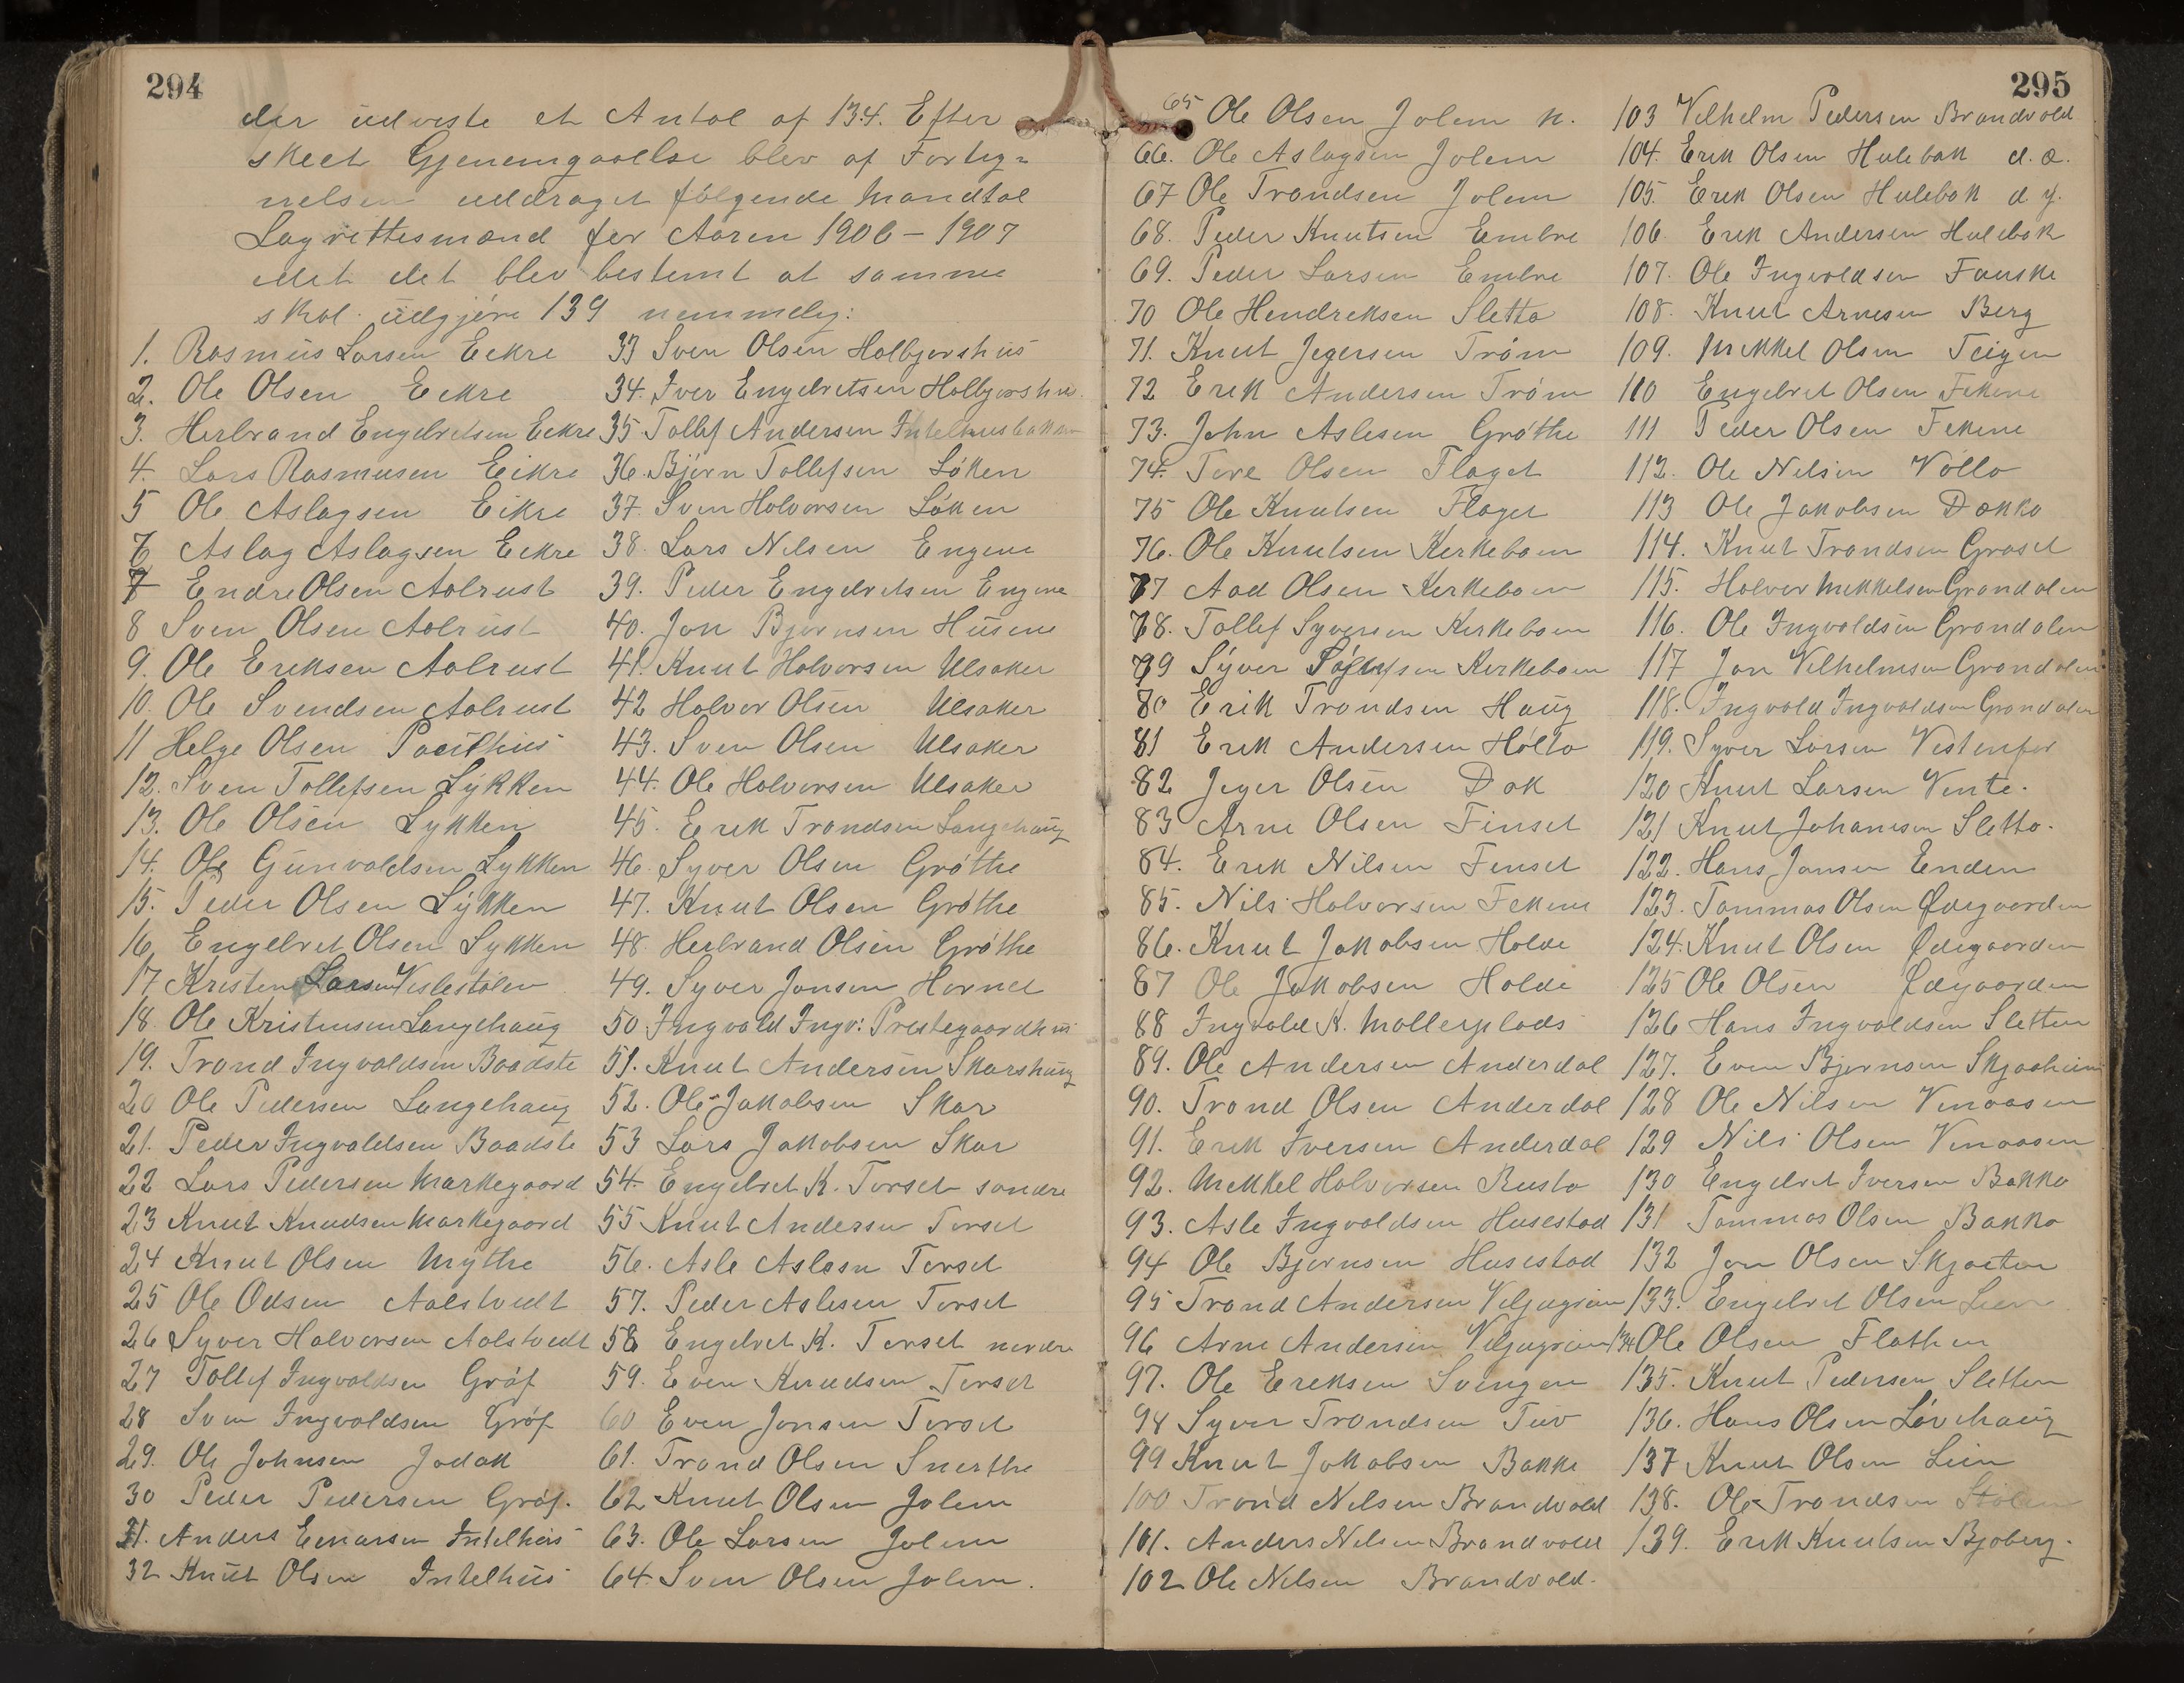 294
der udviste et Antal af 134. Efter
skeet Gjenemgaaelse blev af Forteg=
nelsen uddraget følgende Mandtal
Lagrettesmænd for Aaren 1906 - 1907
idet det blev bestemt at samme
skal udgjøre 139 nemmelig:
1. Rasmus Larsen Eikre
2. Ole Olsen Eikre
3. Herbrand Engebretsen Eikre
4. Lars Rasmusen Eikre
5 Ole Aslagsen Eikre
6 Aslag Aslagsen Eikre
7 Endre Olsen Aalrust
8 Sven Olsen Aalrust
9. Ole Eriksen Aalrust
10. Ole Svendsen Aalrust
11 Helge Olsen
12. Sven Tollefsen Lykken
13. Ole Olsen Lykken
14. Ole Gunvaldsen Lykken
15. Peder Olsen Lykken
16 Engebret Olsen Lykken
17 Kristen Larsen Veslestølen
18. Ole Kristensen Langehaug
19. Trond Ingvaldsen Baadste
20 Ole Pedersen Langehaug
21. Peder Ingvaldsen Baadste
22 Lars Pedersen Markegaard
23 Knut Knudsen Markegaard
24 Knut Olsen Mythe
25 Ole Odsen Aalstvedt
26 Syver Halvorsen Aalstvedt
27 Tollef Ingvaldsen Grøf
28 Sven Ingvaldsen Grøf
29. Ole Johnsen Jodak
30 Peder Pedersen Grøf.
31. Anders Einarsen Intelhus
32 Knut Olsen Intelhus
33 Sven Olsen Holbjørshus
34. Iver Engebretsen Holbjørshus.
35. Tollef Andersen Intelhusbakken
36. Bjørn Tollefsen Løken
37. Sven Halvorsen Løken
38. Lars Nilsen Engene
39. Peder Engebretsen Engene
40. Jon Bjørnsen Husene
41. Knut Halvorsen Ulsaker
42 Halvor Olsen Ulsaker
43. Sven Olsen Ulsaker
44. Ole Halvorsen Ulsaker
45. Erik Trondsen Langehaug
46. Syver Olsen Grøthe
47. Knut Olsen Grøthe
48. Herbrand Olsen Grøthe
49. Syver Jonsen Hornet
50. Ingvald Ingv: Prestegaardhus
51. Knut Andersen Skarshaug
52. Ole Jakobsen Skar
53 Lars Jakobsen Skar
54. Engebret K. Torset søndre
55 Knut Andersen Torset
56. Asle Aslesn Torset
57. Peder Aslesen Torset
58 Engebret K. Torset nordre
59. Even Knudsen Torset
60 Even Jonsen Torset
61. Trond Olsen Snerthe
62 Knut Olsen Jolem
63. Ole Larsen Jolem
64. Sven Olsen Jolem.
295
65 Ole Olsen Jolem n.
66. Ole Aslagsen Jolem
67 Ole Trondsen Jolem
68. Peder Knutsen Embre
69. Peder Larsen Embre
70 Ole Hendreksen Sletto
71. Knut Jegersen Trøm
72 Erik Andersen Trøm
73. John Aslesen Grøthe
74. Tore Olsen Flaget
75 Ole Knutsen Flaget
76. Ole Knutsen Kirkeboen
77 Aad Olsen Kirkeboen
78. Tollef Syversen Kirkeboen
79 Syver Kirkeboen
80 Erik Trondsen Haug
81 Erik Andersen Holto
82 Jeger Olsen Dok
83 Arne Olsen Finset
84. Erik Nilsen Finset
85. Nils Halvorsen Fekene
86. Knut Jakobsen Holde
87 Ole Jakobsen Holde
88 Ingvald K. Mollerplads
89. Ole Andersen Anderdal
90. Trond Olsen Anderdal
91. Erik Iversen Anderdal
92. Mekkel Halvorsen Rusto
93. Asle Ingvaldsen Husestad
94 Ole Bjørnsen Husestad
95 Trond Andersen Viljugrein
96 Arne Andersen Viljugrein
97. Ole Ereksen Svingen
98 Syver Trondsen Tuv
99 Knut Jakobsen Bakke
100 Trond Nilsen Brandvold
101. Anders Nilsen Brandvold
102 Ole Nilsen Brandvold.
103 Vilhelm Pedersen Brandvold
104. Erik Olsen Hulebak d. æ.
105. Erik Olsen Hulebak d. y.
106. Erik Andersen Hulebak
107. Ole Ingvaldsen Fauske
108. Knut Arnesen Berg
109. Mekkel Olsen Teigen
110 Engebret Olsen Fekene
111 Peder Olsen Fekene
112. Ole Nilsen Vøllo
113 Ole Jakobsen Dokko
114. Knut Trondsen Grøset
115. Halvor Mekkelsen Grøndalen
116. Ole Ingvaldsen Grøndalen
117 Jon Vilhelmsen Grøndalen
118. Ingvald Ingvaldsen Grøndalen
119. Syver Larsen Vestenfor
120 Knut Larsen Vente.
121 Knut Johanesen Sletto.
122. Hans Jonsen Enden
123. Tommas Olsen Ødegaarden
124. Knut Olsen Ødegaarden
125 Ole Olsen Ødegaarden
126 Hans Ingvaldsen Sletten
127. Even Bjørnsen Skjaaheim
128 Ole Nilsen Venaasen
129 Nils Olsen Venaasen
130 Engebret Iversen Bakko
131 Tommas Olsen Bakko
132 Jon Olsen
133. Engebret Olsen Lien
134 Ole Olsen Flathen
135. Knut Pedersen Sletten
136. Hans Olsen Løvehaug
137 Knut Olsen Lien
138. Ole Trondsen Stølen
139. Erik Knutsen Bjøberg.